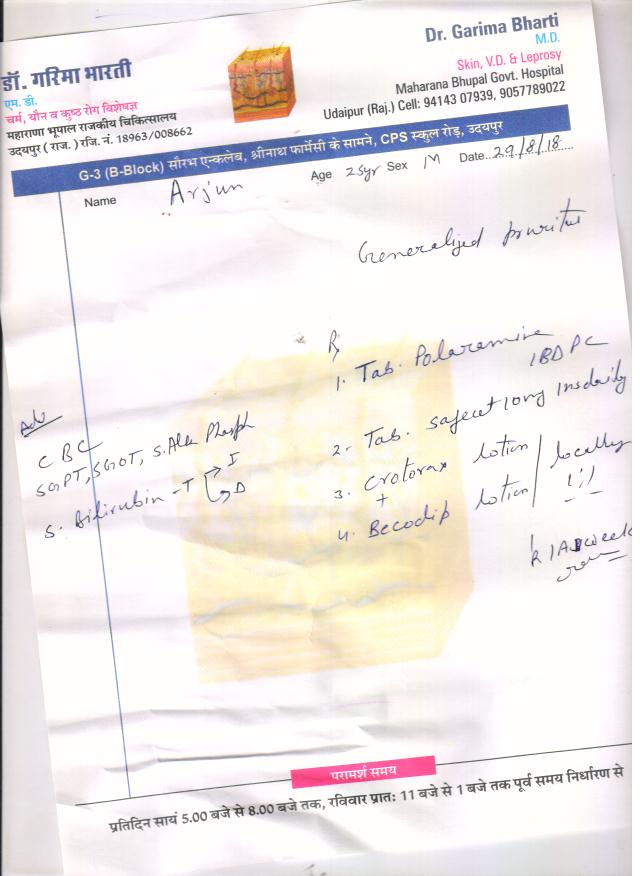 डॉ. गरिमा भारती
एम. डी.
चर्म, यौन व कुष्ठ रोग विशेषज्ञ
महाराणा भूपाल राजकीय चिकित्सालय
उदयपुर ( राज. ) रजि. नं. 18963/008662
Dr. Garima Bharti
M.D.
Skin, V.D. & Leprosy
Maharana Bhupal Govt. Hospital
Udaipur (Raj.) Cell: 94143 07939, 9057789022
G-3 (B-Block) सौरभ एन्कलेव, श्रीनाथ फार्मेसी के सामने, CPS स्कुल रोड़, उदयपुर
Name Arjun Age 25yr Sex M Date 29/8/18
Generalized pruritus
Rx
1. Tab. Polaramine
1 BD PC
2. Tab. safecet 10mg daily
3. Crotorax lotion
+
4. Becodip lotion
locally
Adv
CBC
SGPT, SGOT, S. Alk Phosph
S. Bilirubin - T
I
D
परामर्श समय
प्रतिदिन सायं 5.00 बजे से 8.00 बजे तक, रविवार प्रातः 11 बजे से 1 बजे तक पूर्व समय निर्धारण से